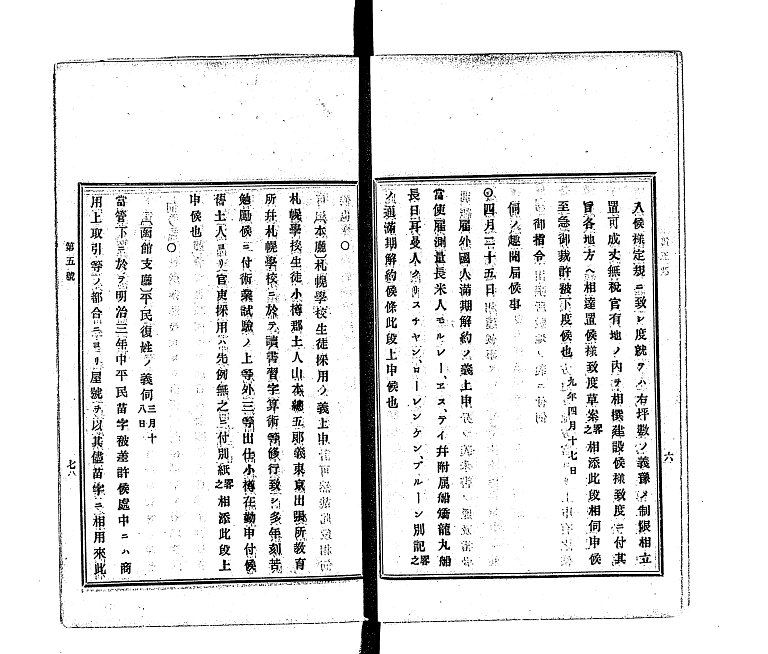 入候樣定規ニ致シ度就テハ右坪數ノ義豫メ制限相立
置可成丈無税官有地ノ内ヲ相撰建設候樣致度ニ付其
旨各地方ヘ相達置候樣致度草案畧之相添此段相伺申候
至急御裁許被下度候也 九年四月十七日
御指令
伺ノ趣聞届候事
◎四月二十五日
雇外國人滿期解約ノ義上申
當使雇測量長米人モルレー、エス、テイ幷附属船矯龍丸船
長日耳曼人クリスチヤン、ローレンケン、ブルーン別記畧之
ノ通滿期解約候條此段上申候也
六
○
〔本廳〕札幌學校生徒採用ノ義上申
札幌學校生徒小樽郡土人山本總五郎義東京出張所敎育
所幷札幌學校ニ於テ讀書習字算術等修行致シ多年刻苦
勉勵候ニ付術業試驗ノ上等外三等出仕小樽在勤申付候
得土人ヨリ官吏採用ノ先例無之ニ付別紙畧之相添此段上
申候也
○
〔函館支廳〕平民復姓ノ義伺 三月十八日
當管下ニ於テ明治三年中平民苗字被差許候處中ニハ商
用上取引等ノ都合ニヨリ屋號ヲ以其儘苗字ニ相用來此
第五號
七